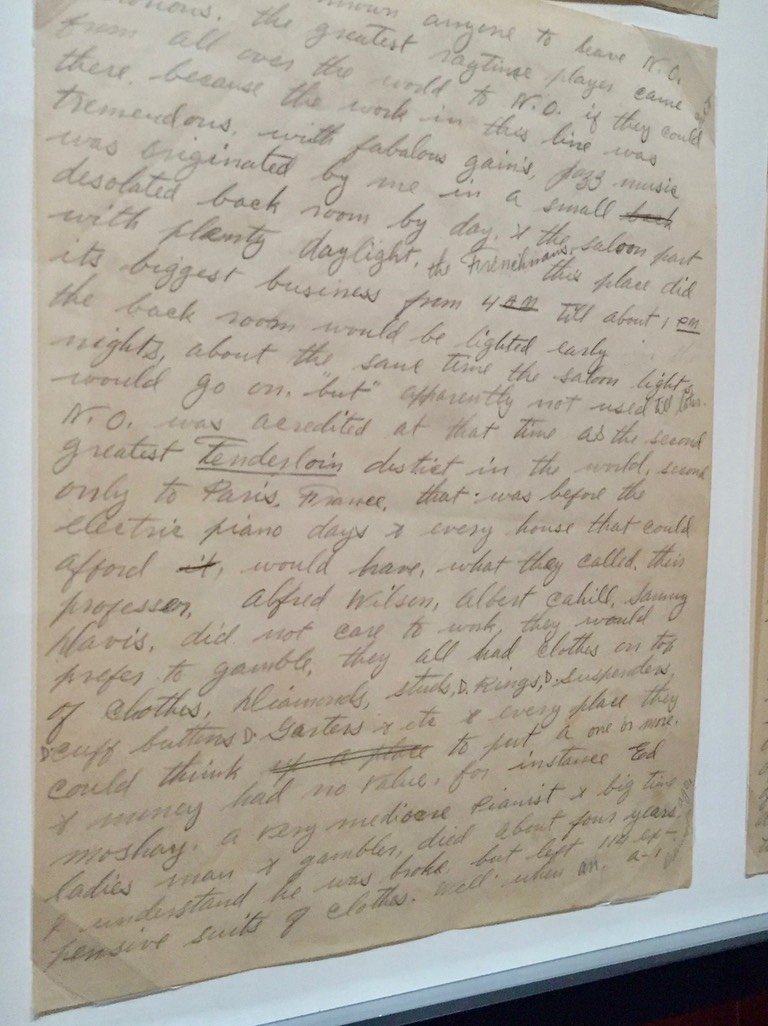 known anyone to leave N.O.
the greatest ragtime player came
from all over the world to N.O. if they could
there, because the work in this line was
tremendous, with fabalous gains, Jazz music
was originated by me in a small back
desolated back room by day, x the saloon part
with plenty daylight, the Frenchmans, this place did
its biggest business from 4 AM till about 1 PM
the back room would be lighted early
nights, about the same time the saloon lights
would go on. "but" apparently not used till later.
N.O. was acredited at that time as the second
greatest Tenderloin distict in the world, second
only to Paris, France, that was before the
electric piano days x every house that could
afford it, would have, what they called, their
professor, Alfred Wilson, Albert Cahill, Sammy
Davis, did not care to work, they would
prefer to gamble, they all had clothes on top
of clothes, Diamonds, studs, D. Rings, D. Suspenders,
D cuff buttons D Garters x etc x every place they
could think of a place to put a one or more.
x money had no value, for instance Ed
moshay. a very mediocre Pianist x big time
ladies man x gambler, died about four years
I understand he was broke, but left 112 ex-
pensive suits of clothes. Well when an, a-1